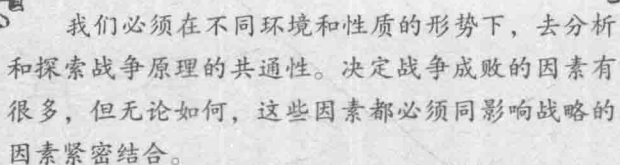 我们必须在不同环境和性质的形势下，去分析
和探索战争原理的共通性。决定战争成败的因素有
很多，但无论如何，这些因素都必须同影响战略的
因素紧密结合。